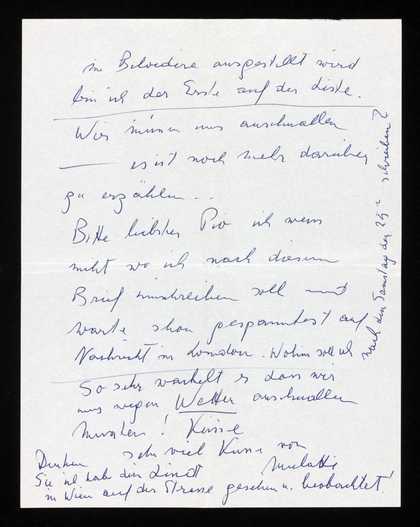 im Belvedere ausgestellt wird
bin ich der Erste auf der Liste.
Wir müssen uns anschnallen
— es ist noch mehr darüber
zu erzählen...
Bitte liebster Pio ich weiss
nicht wo ich nach diesem
Brief hinschreiben soll und
warte schon gespanntest auf
Nachricht in London. Wohin soll ich
nach den Samstag den 29ᵗ schreiben?
So sehr wackelt es dass wir
uns wegen Wetter anschnallen
mussten! Küsse
sehr viel Küsse von
Denken
Sie ich habe den Lindt
in Wien auf der Strasse gesehen u. beobachtet!